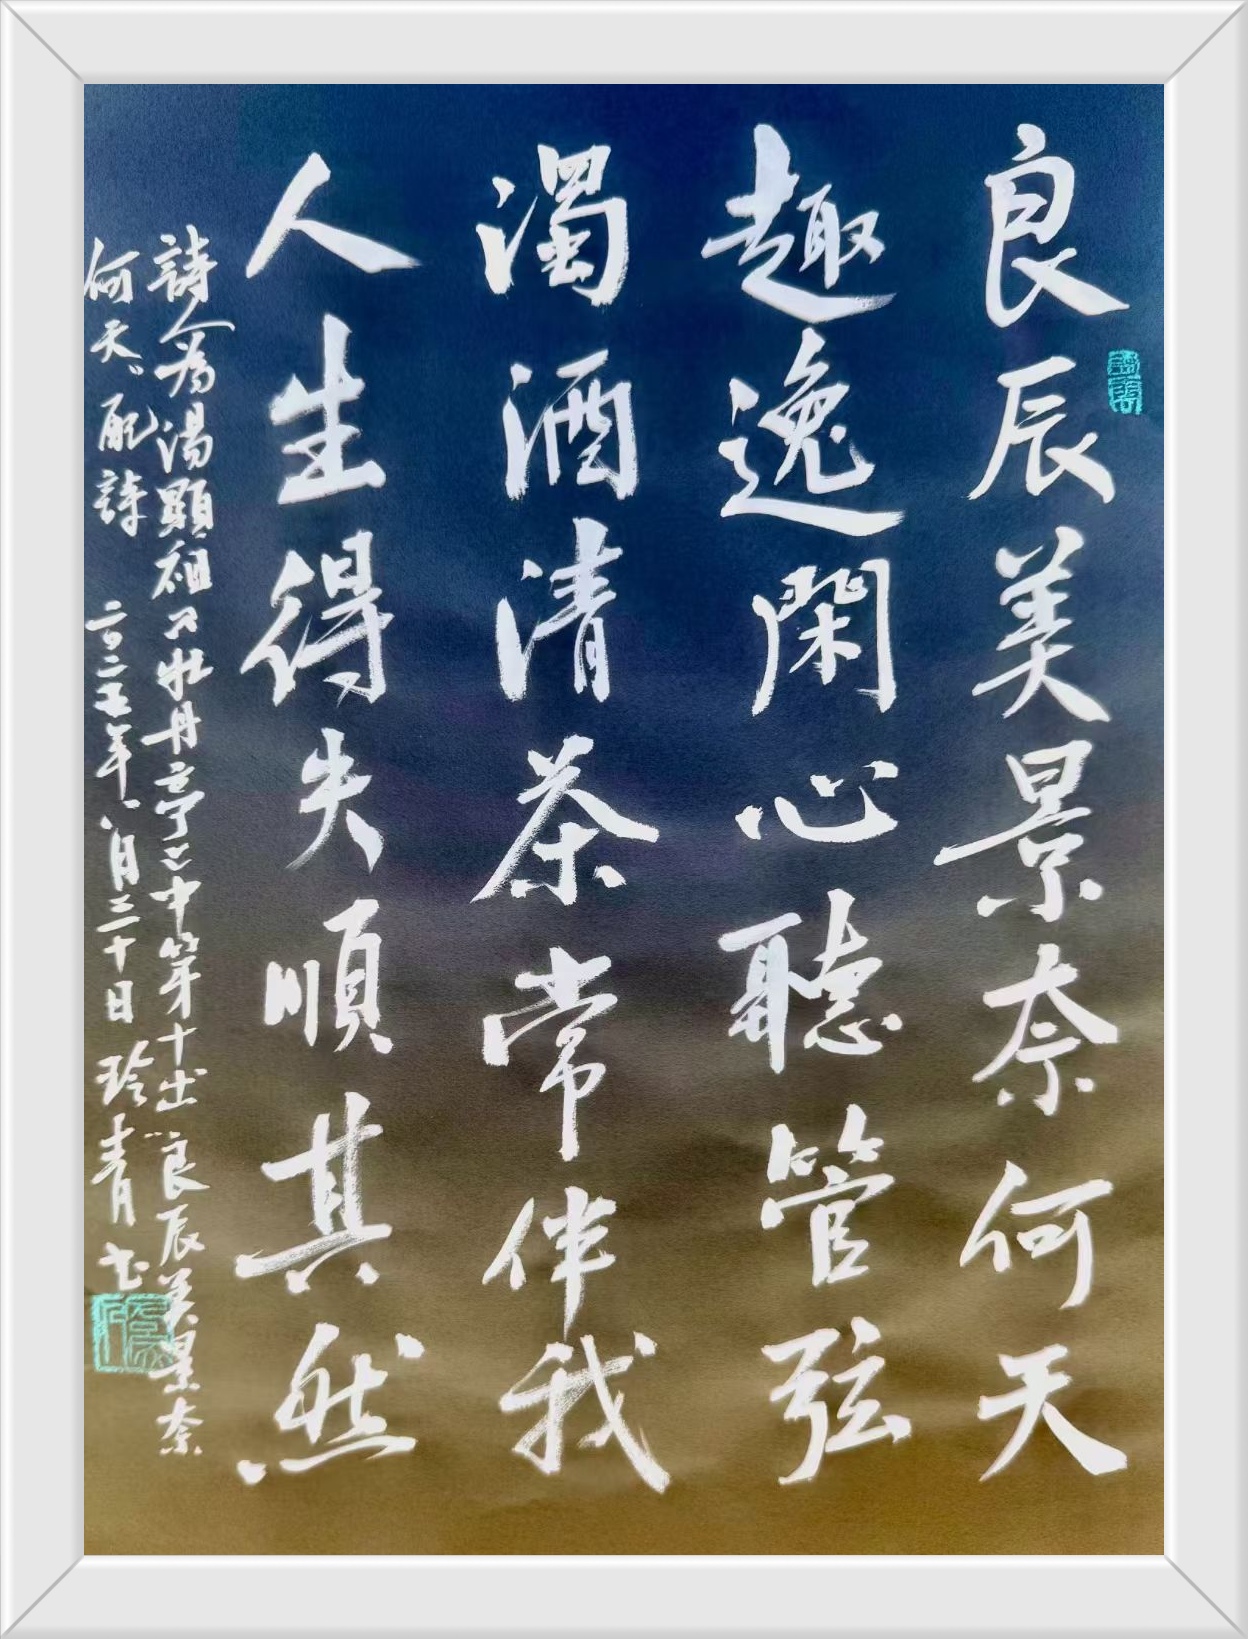 良辰美景奈何天
趣逸閑心聽管弦
濁酒清茶常伴我
人生得失順其然
詩人為湯顯祖《牡丹亭》中第十出"良辰美景奈
何天"配詩 二〇二五年八月二十日 玲青书